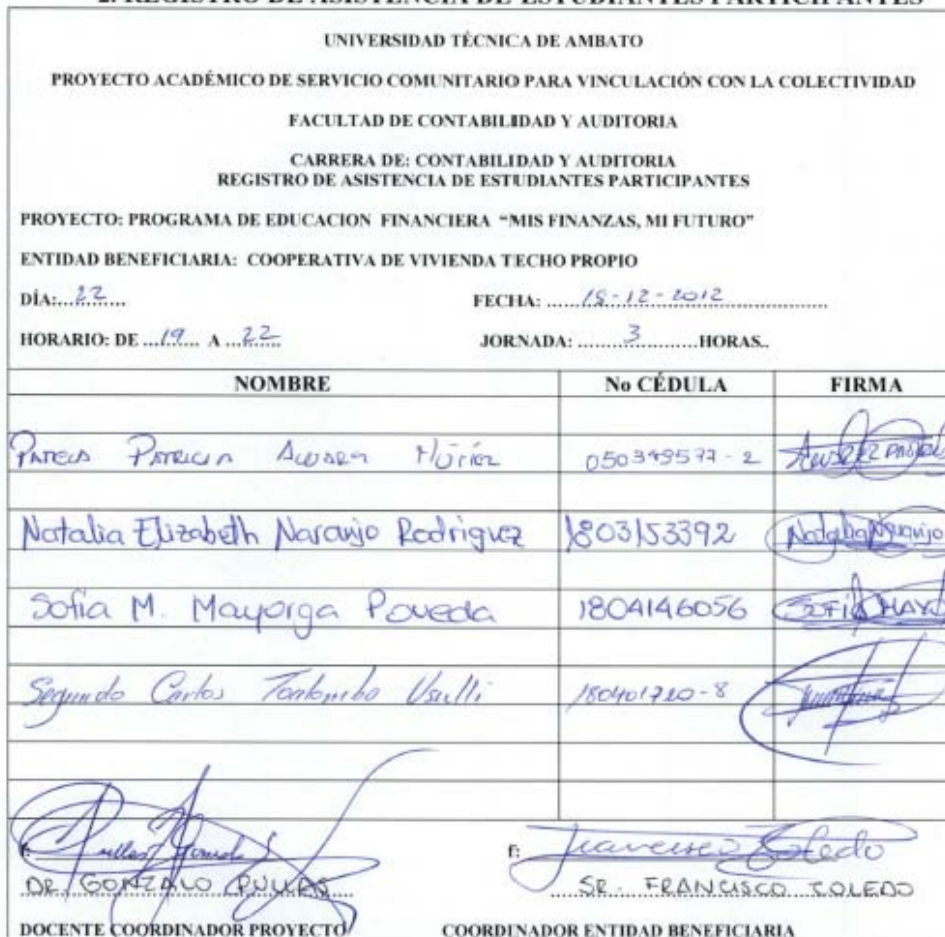 2. REGISTRO DE ASISTENCIA DE ESTUDIANTES PARTICIPANTES
UNIVERSIDAD TÉCNICA DE AMBATO
PROYECTO ACADÉMICO DE SERVICIO COMUNITARIO PARA VINCULACIÓN CON LA COLECTIVIDAD
FACULTAD DE CONTABILIDAD Y AUDITORIA
CARRERA DE: CONTABILIDAD Y AUDITORIA
REGISTRO DE ASISTENCIA DE ESTUDIANTES PARTICIPANTES
PROYECTO: PROGRAMA DE EDUCACION FINANCIERA “MIS FINANZAS, MI FUTURO”
ENTIDAD BENEFICIARIA: COOPERATIVA DE VIVIENDA TECHO PROPIO
DÍA:...22... FECHA: ...-12-2012...
HORARIO: DE ...19... A ...22... JORNADA: ...3...HORAS..
NOMBRE No CÉDULA FIRMA
Patricia 
Natalia Elizabeth Naranjo Rodriguez 1803153392 Natalia Naranjo
Sofia M. Mayorga Poveda 1804146056 SOFÍA MAYO
Segundo Carlos 180401720-8
f: f: Francisco Toledo
DR. GONZALO PULLAS SR. FRANCISCO TOLEDO
DOCENTE COORDINADOR PROYECTO COORDINADOR ENTIDAD BENEFICIARIA